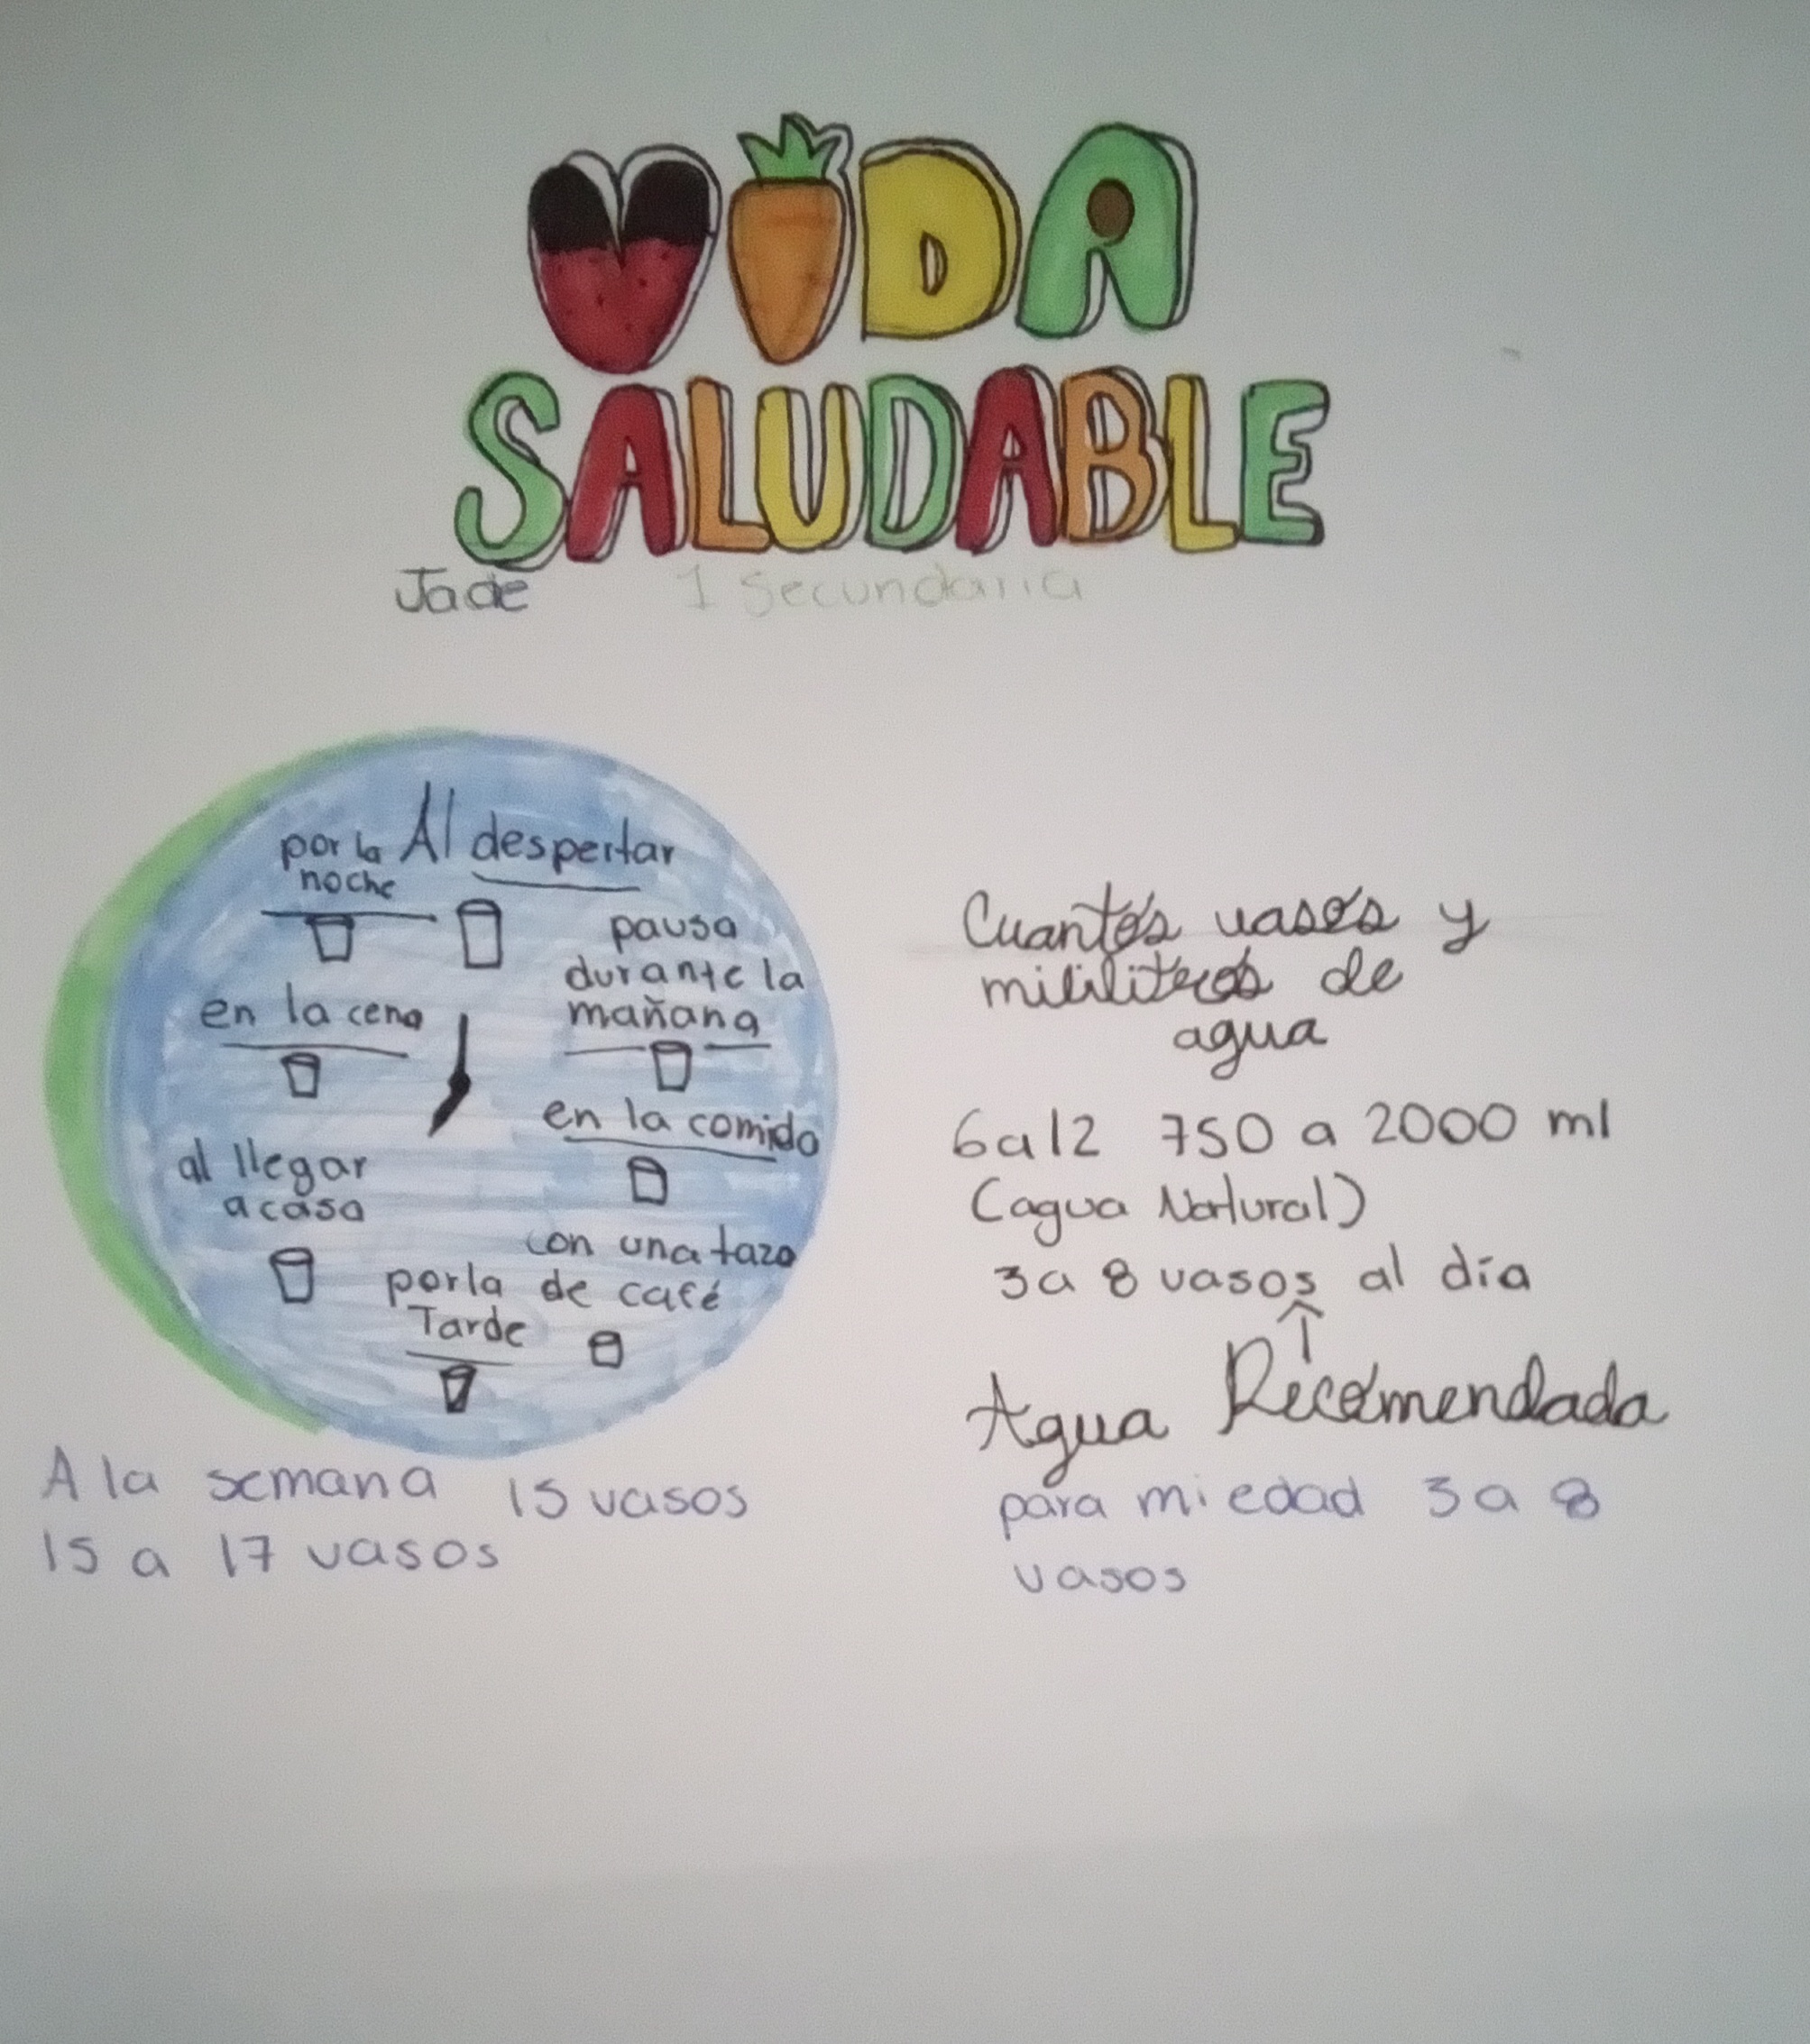 VIDA
SALUDABLE
Jade 1 Secundaria
por la
noche
Al despertar
pausa
durante la
mañana
en la cena
en la comida
al llegar
a casa
con una taza
de café
por la
Tarde
A la semana 15 vasos
15 a 17 vasos
Cuantos vasos y
mililitros de
agua
6 a 12 750 a 2000 ml
(agua Natural)
3 a 8 vasos al día
Agua Recomendada
para mi edad 3 a 8
vasos